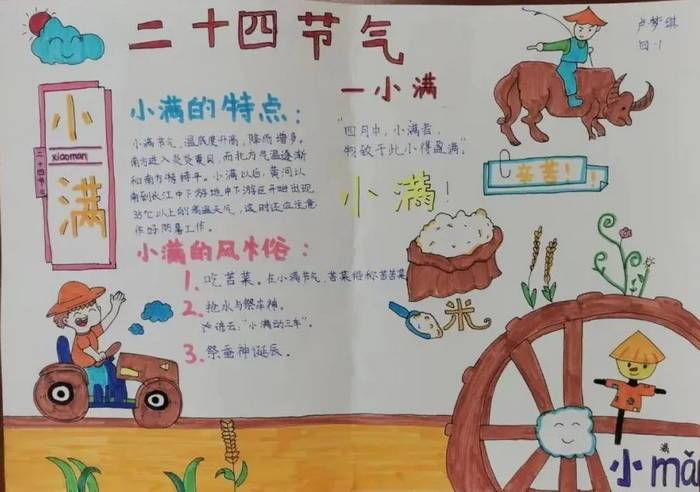 二十四节气
—小满
卢梦琪
四.1
小满
xiaoman
二十四节气
小满的特点：
小满节气，温度升高，降雨增多。
南方进入炎炎夏日，而北方气温逐渐
和南方持平。小满以后，黄河以
南到长江中下游地中下游区开始出现
35℃以上的高温天气，这时还应注意
作好防暑工作。
小满的风俗：
1、吃苦菜。在小满节气，苦菜
2、抢水与祭车神。
谚语云："小满动三车"。
3、祭蚕神诞辰。
"四月中，小满者，
物致于此小得盈满。"
小满！
辛苦！！
米
小满 mǎn